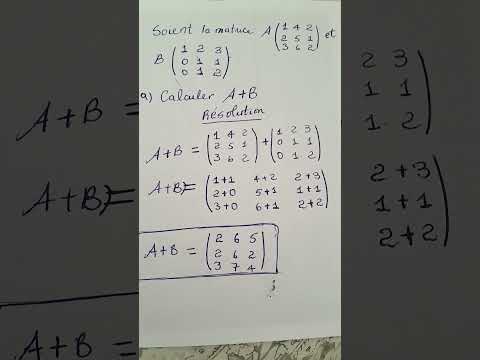 Soient la matrice A (1 4 2 / 2 5 1 / 3 6 2) et
B (1 2 3 / 0 1 1 / 0 1 2)
a) Calculer A+B
Résolution
A+B = (1 4 2 / 2 5 1 / 3 6 2) + (1 2 3 / 0 1 1 / 0 1 2)
A+B = (1+1 4+2 2+3 / 2+0 5+1 1+1 / 3+0 6+1 2+2)
A+B = (2 6 5 / 2 6 2 / 3 7 4)